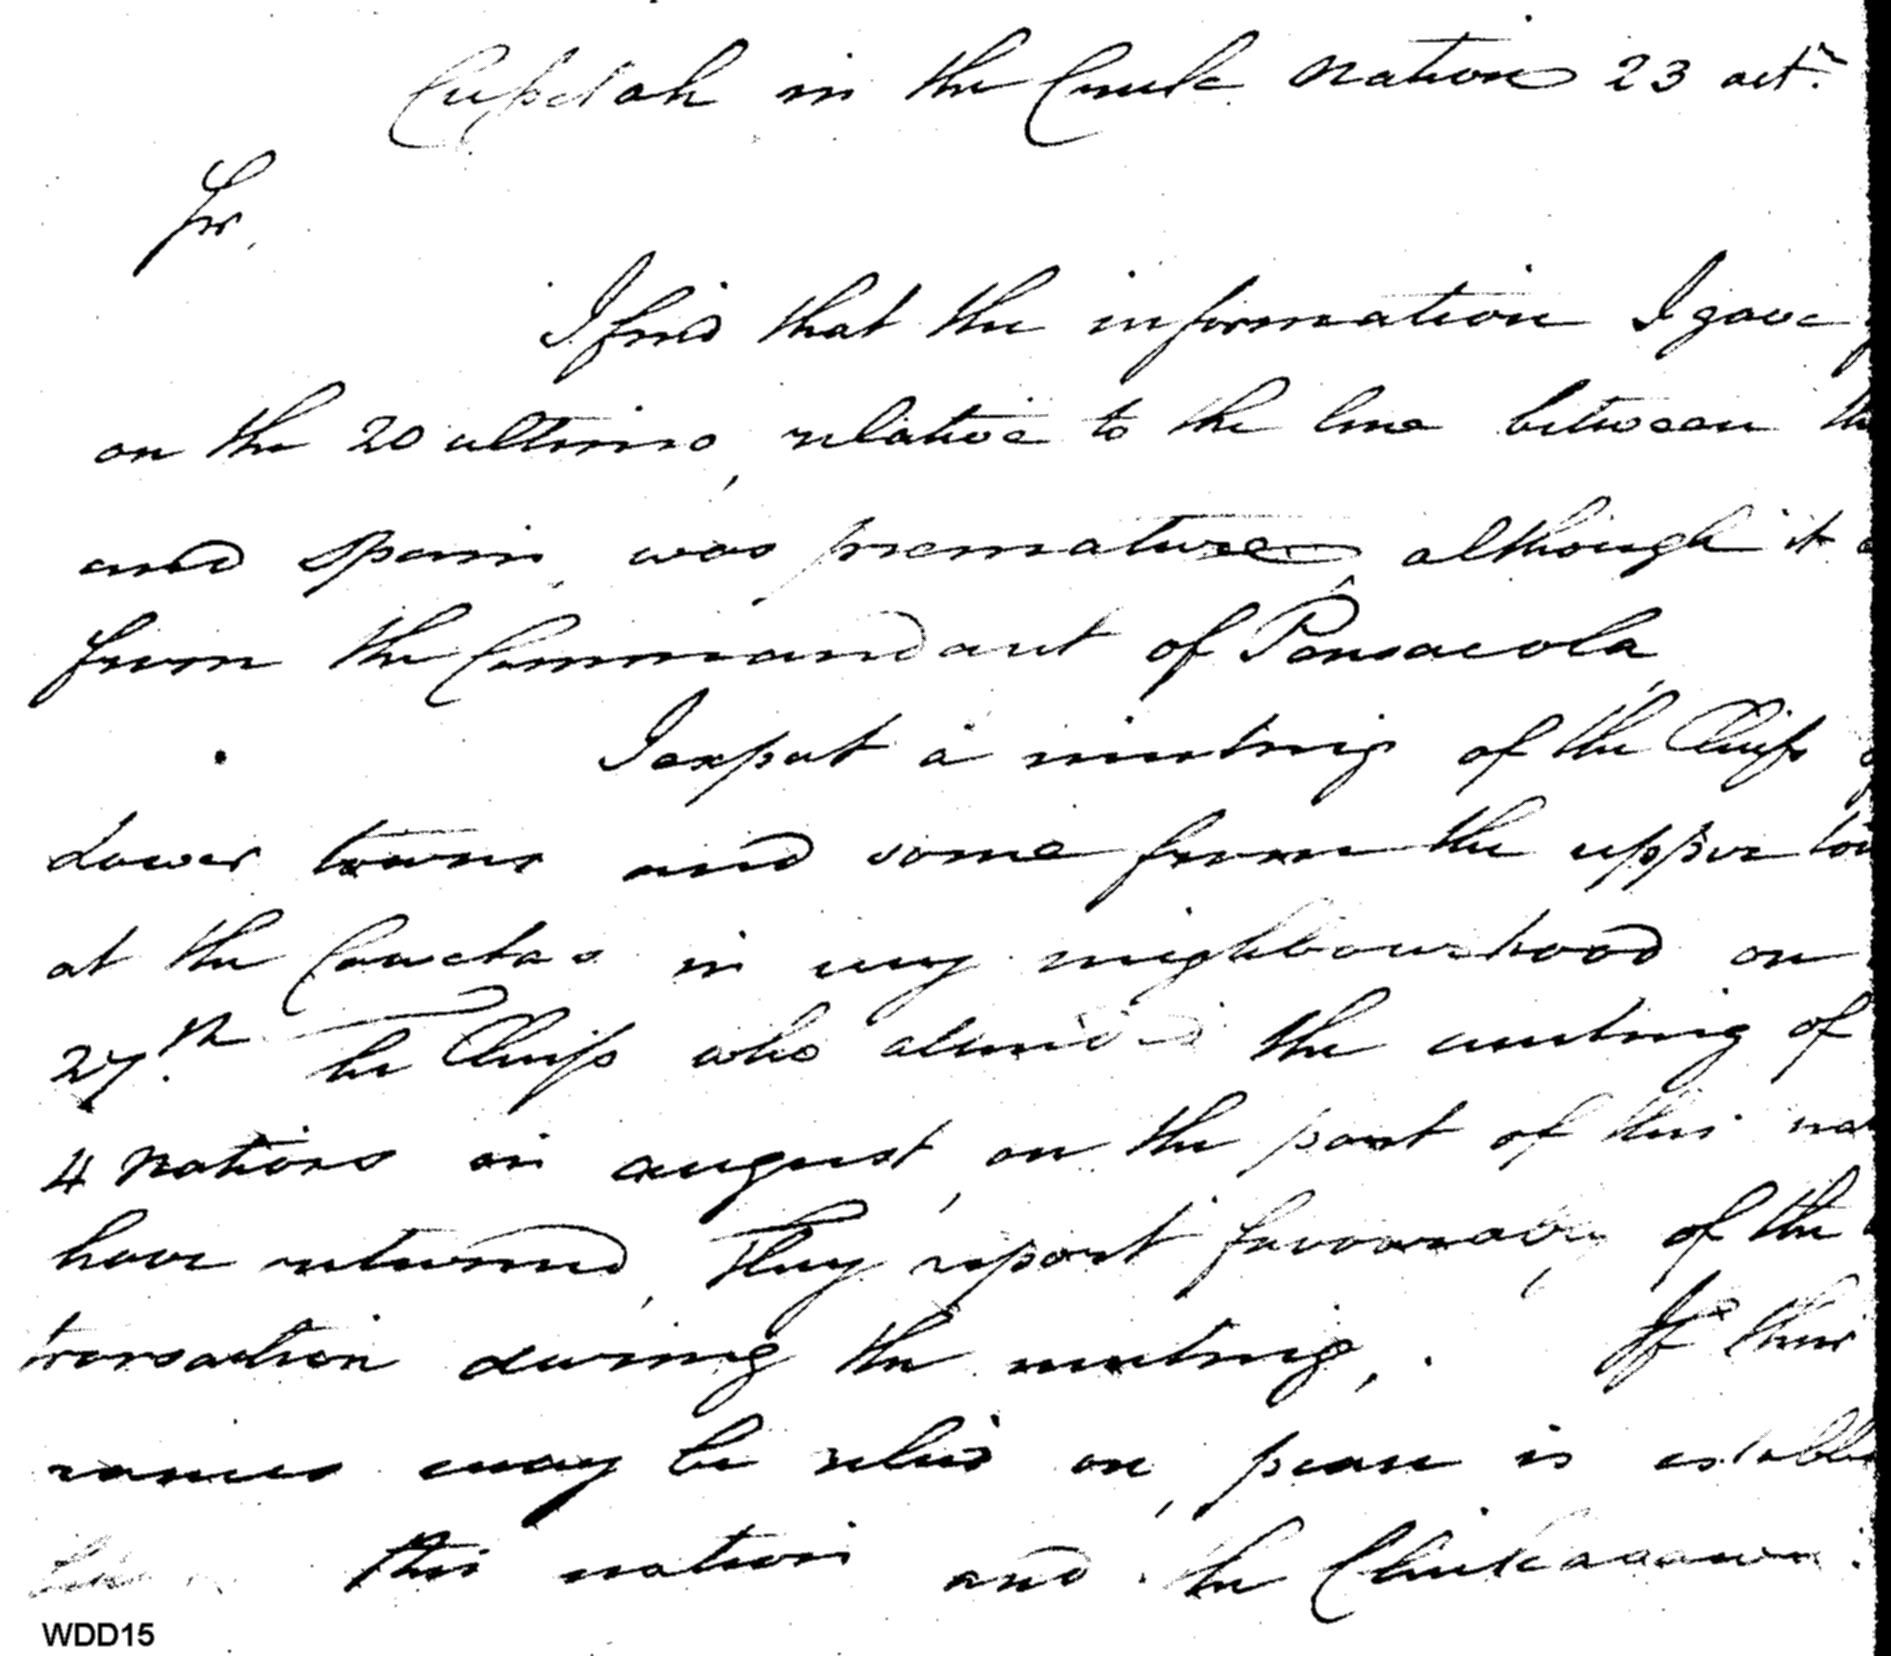 Cussetah in the Creek nation 23 oct.r
Sir,
I find that the information I gave
on the 20 ultimo, relative to the line between th
and Spain, was premature, although it
from the Commandant of Pensacola,
I expect a meeting of the Chiefs
Lower towns and some from the upper tow
at the Cowetas in my neighbourhood on
27.th The Chiefs who attended the meeting of
4 nations in august, on the part of this nat
have returned, They report favourably, of the
transaction during the meeting,. If their
rances may be relied on, peace is establis
this nation and the Chickasaws.
WDD15